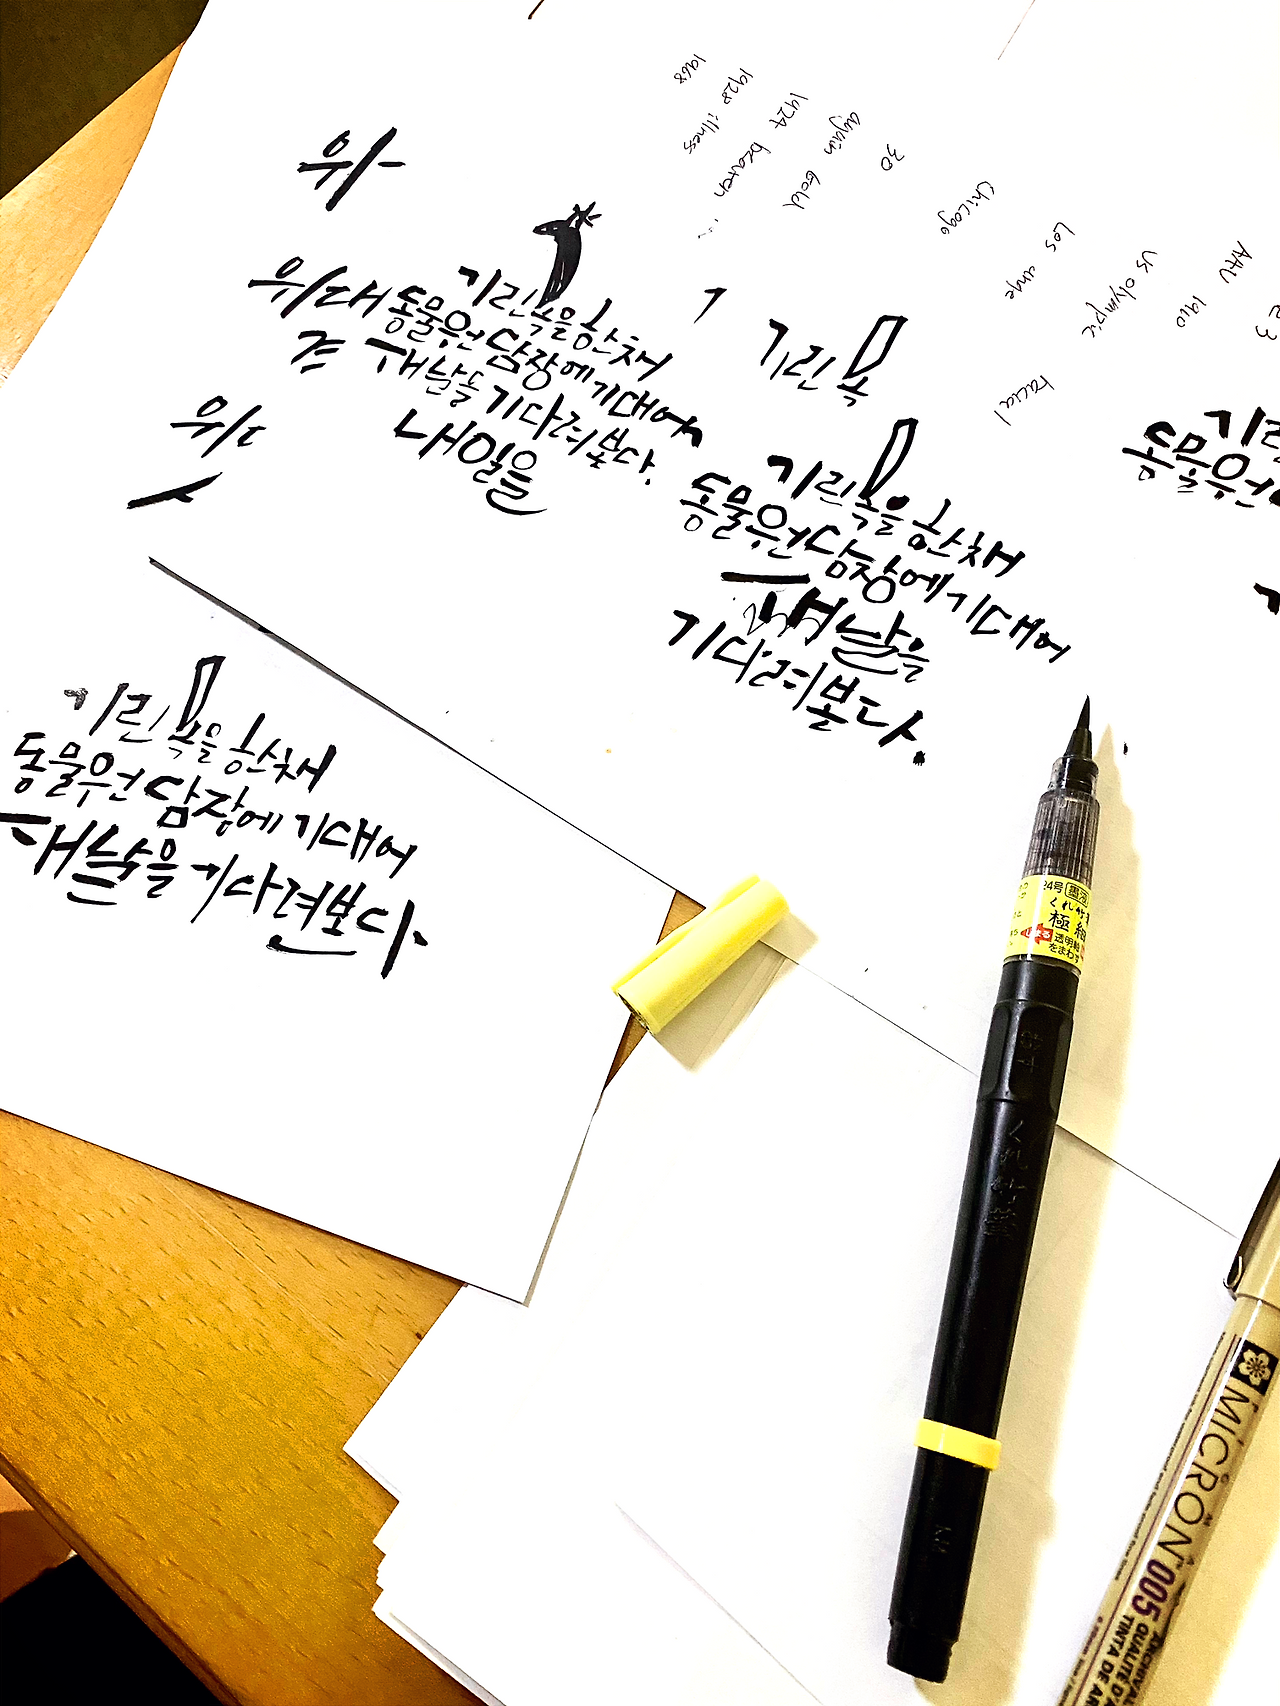 위
위대
견
위
기린 목을 한 채
동물원 담장에 기대어
새날을 기다려 본다.
내일을
기린 목
기린 목을 한 채
동물원 담장에 기대어
새날을
기다려 본다.
기린
동물원
기린 목을 한 채
동물원 담장에 기대어
새날을 기다려 본다.
1968
1928 illness
1924 beaten
gold
30
Chicago
Los ange
US olympic
AAU 1910
23
racial
24号 墨液
くれ竹
極細
透明軸
をまわす
くれ竹筆
MICRON 005